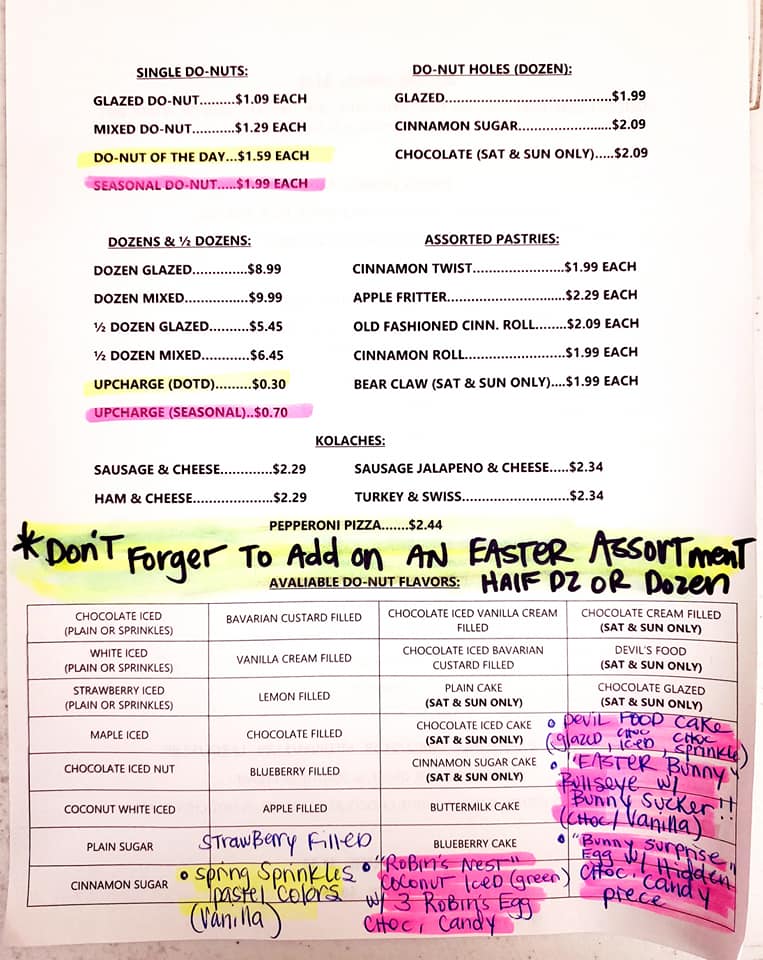 SINGLE DO-NUTS:
GLAZED DO-NUT.........$1.09 EACH
MIXED DO-NUT..........$1.29 EACH
DO-NUT OF THE DAY...$1.59 EACH
SEASONAL DO-NUT.....$1.99 EACH
DO-NUT HOLES (DOZEN):
GLAZED.........................................$1.99
CINNAMON SUGAR.......................$2.09
CHOCOLATE (SAT & SUN ONLY).....$2.09
DOZENS & ½ DOZENS:
DOZEN GLAZED..............$8.99
DOZEN MIXED................$9.99
½ DOZEN GLAZED..........$5.45
½ DOZEN MIXED............$6.45
UPCHARGE (DOTD).........$0.30
UPCHARGE (SEASONAL)..$0.70
ASSORTED PASTRIES:
CINNAMON TWIST.......................$1.99 EACH
APPLE FRITTER.............................$2.29 EACH
OLD FASHIONED CINN. ROLL........$2.09 EACH
CINNAMON ROLL.........................$1.99 EACH
BEAR CLAW (SAT & SUN ONLY)....$1.99 EACH
KOLACHES:
SAUSAGE & CHEESE.............$2.29
HAM & CHEESE....................$2.29
SAUSAGE JALAPENO & CHEESE.....$2.34
TURKEY & SWISS...........................$2.34
PEPPERONI PIZZA.......$2.44
*DON'T FORGER TO Add on AN EASTER ASSORTmENT
HALF DZ OR DOZEN
AVALIABLE DO-NUT FLAVORS:
CHOCOLATE ICED
(PLAIN OR SPRINKLES)
BAVARIAN CUSTARD FILLED
CHOCOLATE ICED VANILLA CREAM
FILLED
CHOCOLATE CREAM FILLED
(SAT & SUN ONLY)
WHITE ICED
(PLAIN OR SPRINKLES)
VANILLA CREAM FILLED
CHOCOLATE ICED BAVARIAN
CUSTARD FILLED
DEVIL'S FOOD
(SAT & SUN ONLY)
STRAWBERRY ICED
(PLAIN OR SPRINKLES)
LEMON FILLED
PLAIN CAKE
(SAT & SUN ONLY)
CHOCOLATE GLAZED
(SAT & SUN ONLY)
MAPLE ICED
CHOCOLATE FILLED
CHOCOLATE ICED CAKE
(SAT & SUN ONLY)
CHOCOLATE ICED NUT
BLUEBERRY FILLED
CINNAMON SUGAR CAKE
(SAT & SUN ONLY)
COCONUT WHITE ICED
APPLE FILLED
BUTTERMILK CAKE
PLAIN SUGAR
STRAWBERRY FILLED
BLUEBERRY CAKE
CINNAMON SUGAR
• SPRING SPRINKLES
PASTEL COLORS
(VANILLA)
• "ROBIN'S NEST"
COCONUT ICED (green)
w/ 3 ROBIN'S EGG
CHOC, CANDY
• DEVIL FOOD CAKE
(glazed, CHOC ICED, CHOC sprinkle)
• "EASTER Bunny"
Bullseye w/
Bunny Sucker!!
(CHOC/Vanilla)
• "Bunny SURPRISE"
Egg w/ Hidden
CHOC, CANDY
piece